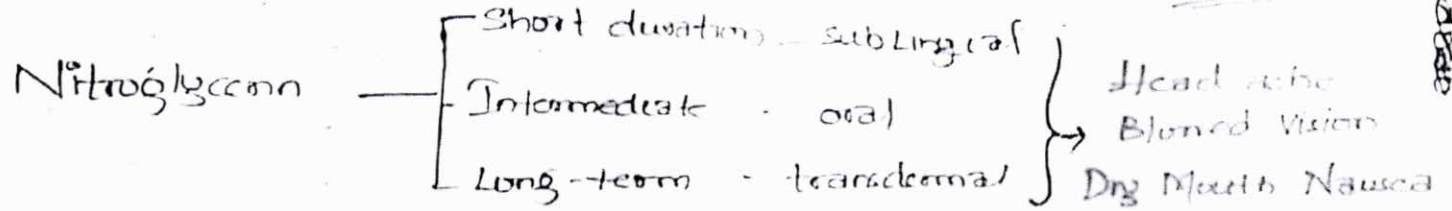 Nitroglyceron
Short duration - sublingual
Intermediate - oral
Long-term - transdermal
Head ache
Blurred Vision
Dry Mouth Nausea